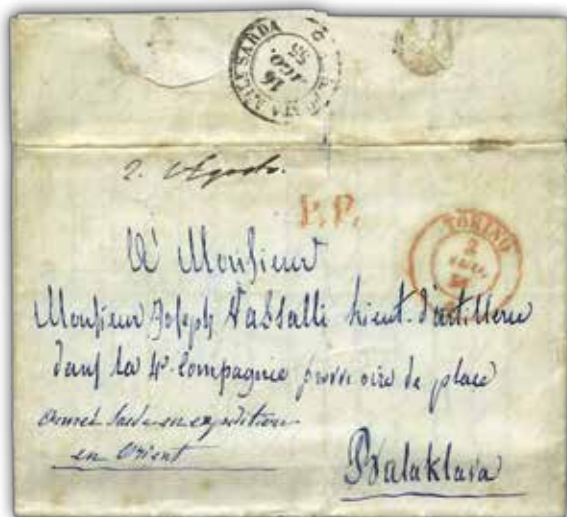 POSTA MILITARE SARDA
16
AGO.
55
2. Agosto.
P.P.
TORINO
2
AGO.
A Monsieur
Monsieur Joseph Vassalli Lieut. d'artillerie
dans la 4e compagnie provisoire de place
Armée Sarde en expédition
en Orient
Balaklava